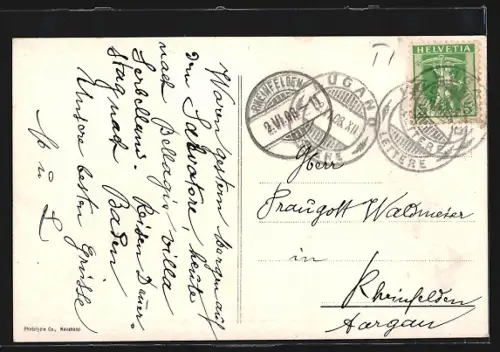 Waren gestern Morgen auf
dem Salvatore, heute
nach Bellagio, Villa
Serbelloni. Reisen Donners-
tag nach Baden
Unsere besten Grüsse
HELVETIA
RHEINFELDEN
2.VI.09
LUGANO
LETTERE
LETTERE
Herr
Traugott Waldmeier
in
Rheinfelden
Aargau
Phototypie Co., Neuchâtel